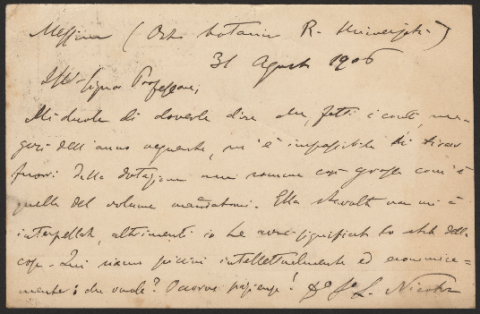 Messina (Orto botanico R. Università)
31 Agosto 1906
Ill. Signor Professore,
Mi duole di doverle dire che, fatti i conti, ma-
gari dell'anno seguente, mi è impossibile di tirar
fuori dalla dotazione una somma così grossa com'è
quella del volume mandatomi. Ella stavolta non mi à
interpellato, altrimenti io Le avrei significato lo stato delle
cose. Qui siamo piccini intellettualmente ed economica-
mente: che vuole? Occorre pazienza! L. Nicotra